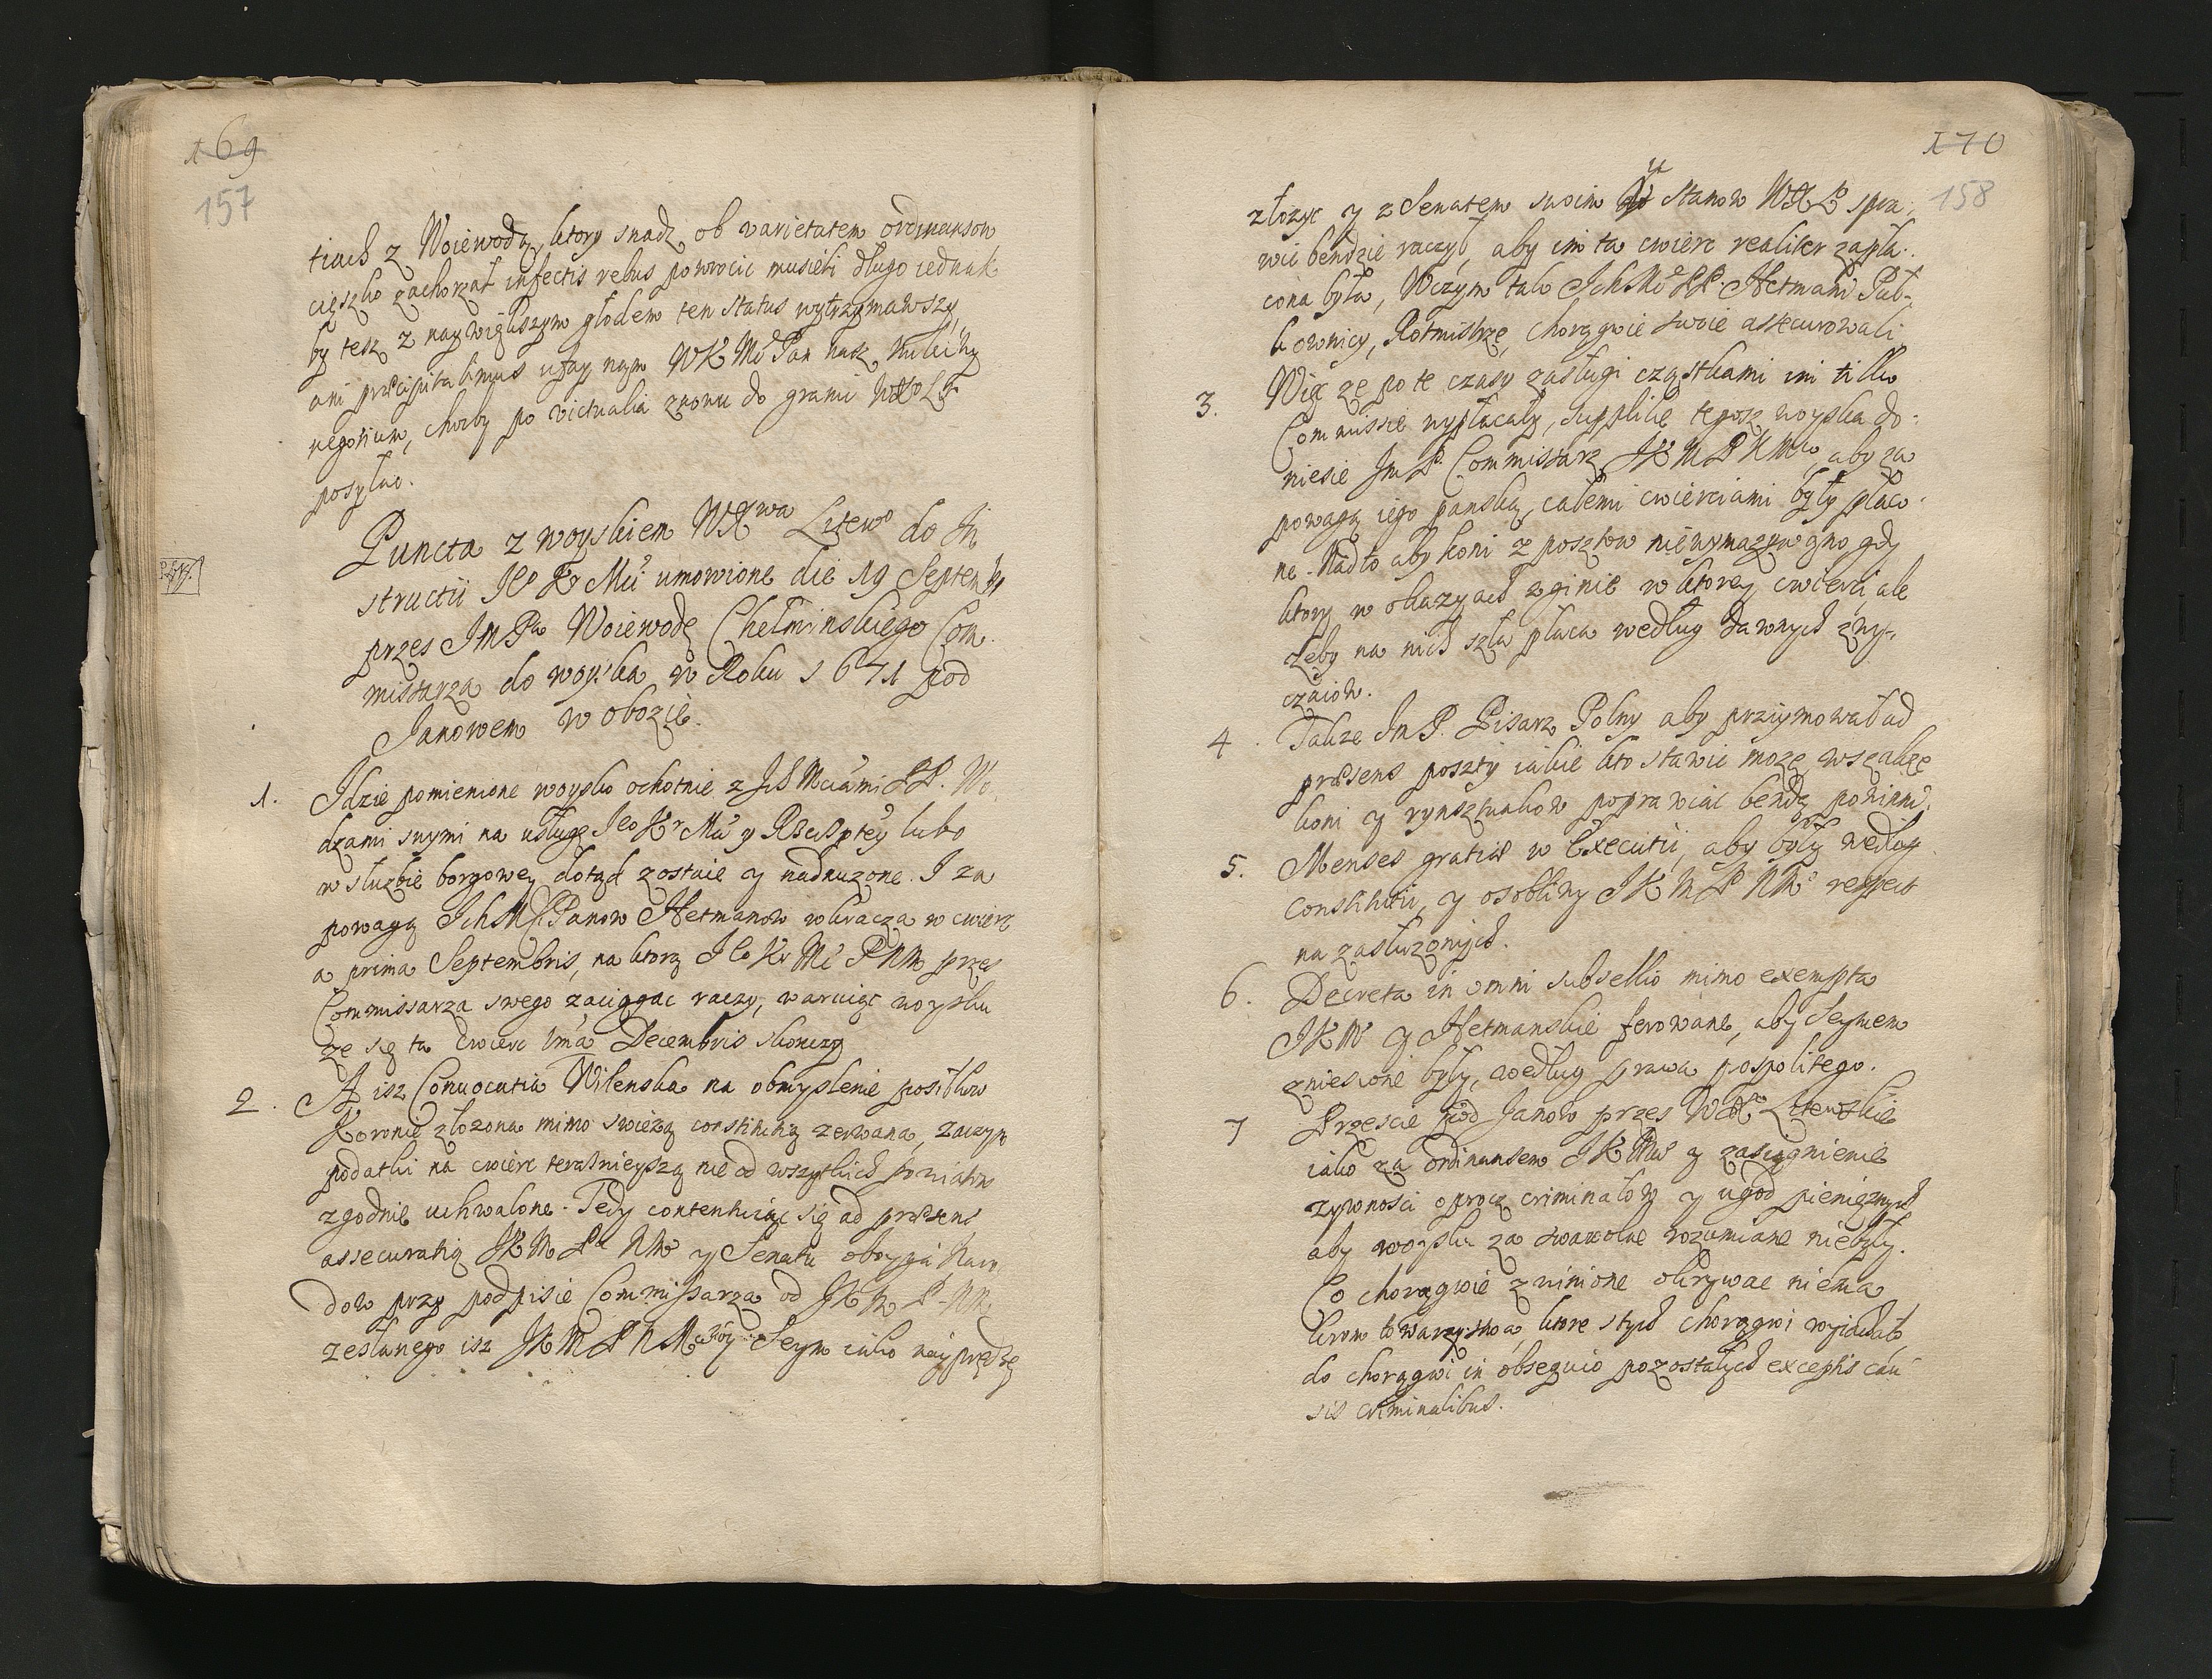 169
157
tiach z Woiewodą, ktory snadz ob varietatem ordinansow
cięszko zachorzał infectis rebus powrocic musieli długo iednak
by tesz z naywiększym głodem ten status wytrzymawszy
ani præcipitabimus ufay nąm WKMć Pan nasz
negotium, chocby po victualia znowu do granic WXLo
posyłac.
Puncta z woyskiem WXwa Litewo do In
structii JeoKrMci umowione die 19 Septembr
przes JmPa Woiewodę Chełminskiego Com.
missarza do woyska w Roku 1671 pod
Janowem w obozie.
1. Idzie pomienione woysko ochotnie z JchMciami PP. Wo.
dzami swymi na usługę JeoKrMci y Rzeczyptey lubo
w słuzbie borgowey dotąd zostaie y nadnuzone. I za
powagą JchMć Panow Hetmanow wkracza w cwierc
a prima Septembris, na ktorą JeoKrMć PNM przes
Commissarza swego zaciągac raczy, waruiąc woysku
ze się ta cwierc 1ma Decembris skonczy
2. A isz Convocatia Wilenska na obmyslenie posiłkow
Koronie złozona mimo swiezą constitutią zerwana, zaczym
podatki na cwierc terasnieyszą nie od wszytkich powiatow
zgodnie uchwalone. Tedy contentuiąc się ad præsens
assecuratią JKM Pa NM y Senatu oboyga Naro.
dow przy podpisie Commissarza od JKM P NM
zesłanego isz JKM P N M Seym iako nayprędzey
170
158
złozyc y z Senatem swoim u Stanow WXL spra.
wic bendzie raczył, aby im ta cwierc realiter zapła.
cona była, Wczym tak JchMć PP. Hetmani Puł.
kownicy, Rotmistrze, chorągwie swoie assecurowali
3. Więc ze po te czasy zasługi cząstkami im tilko
Commissie wypłacały, supplikę tegosz woyska do.
niesie JmP. Commissarz JKM P N Mu, aby za
powagą iego panską, całemi cwierciami były płaco.
ne. Nadto aby koni z posztow niewymazywano gdy
ktory w okazyach zginie w ktorey cwierci, ale
zeby na nich szła płaca według dawnych zwy.
czaiow.
4. Takze JmP. Pisarz Polny aby przyimował ad
præsens poszty iakie kto stawic moze, wszakze
koni y rynsztunkow poprawiac bendą powinni.
5. Menses gratiæ w Executii, aby były według
constitutii, y osobliwy JKM P NMć respect
na zasłuzonych.
6. Decreta in omni subsellio mimo exempta
JKM y Hetmanskie ferowane, aby Seymem
zniesione były, według prawa pospolitego.
7 Przescie pod Janow przes WXo Litewskie
iako za ordinansem JKMci y zasiągnienie
zywnosci oprocz criminałow y ugod pienięznych
aby woysku za swawolne rozumiane niebyły.
Co chorągwie zwinione okrywac niema
krom towarzystwa, ktore stych chorągwi wyiachało
do chorągwi in obsequio pozostałych exceptis cau
sis criminalibus.